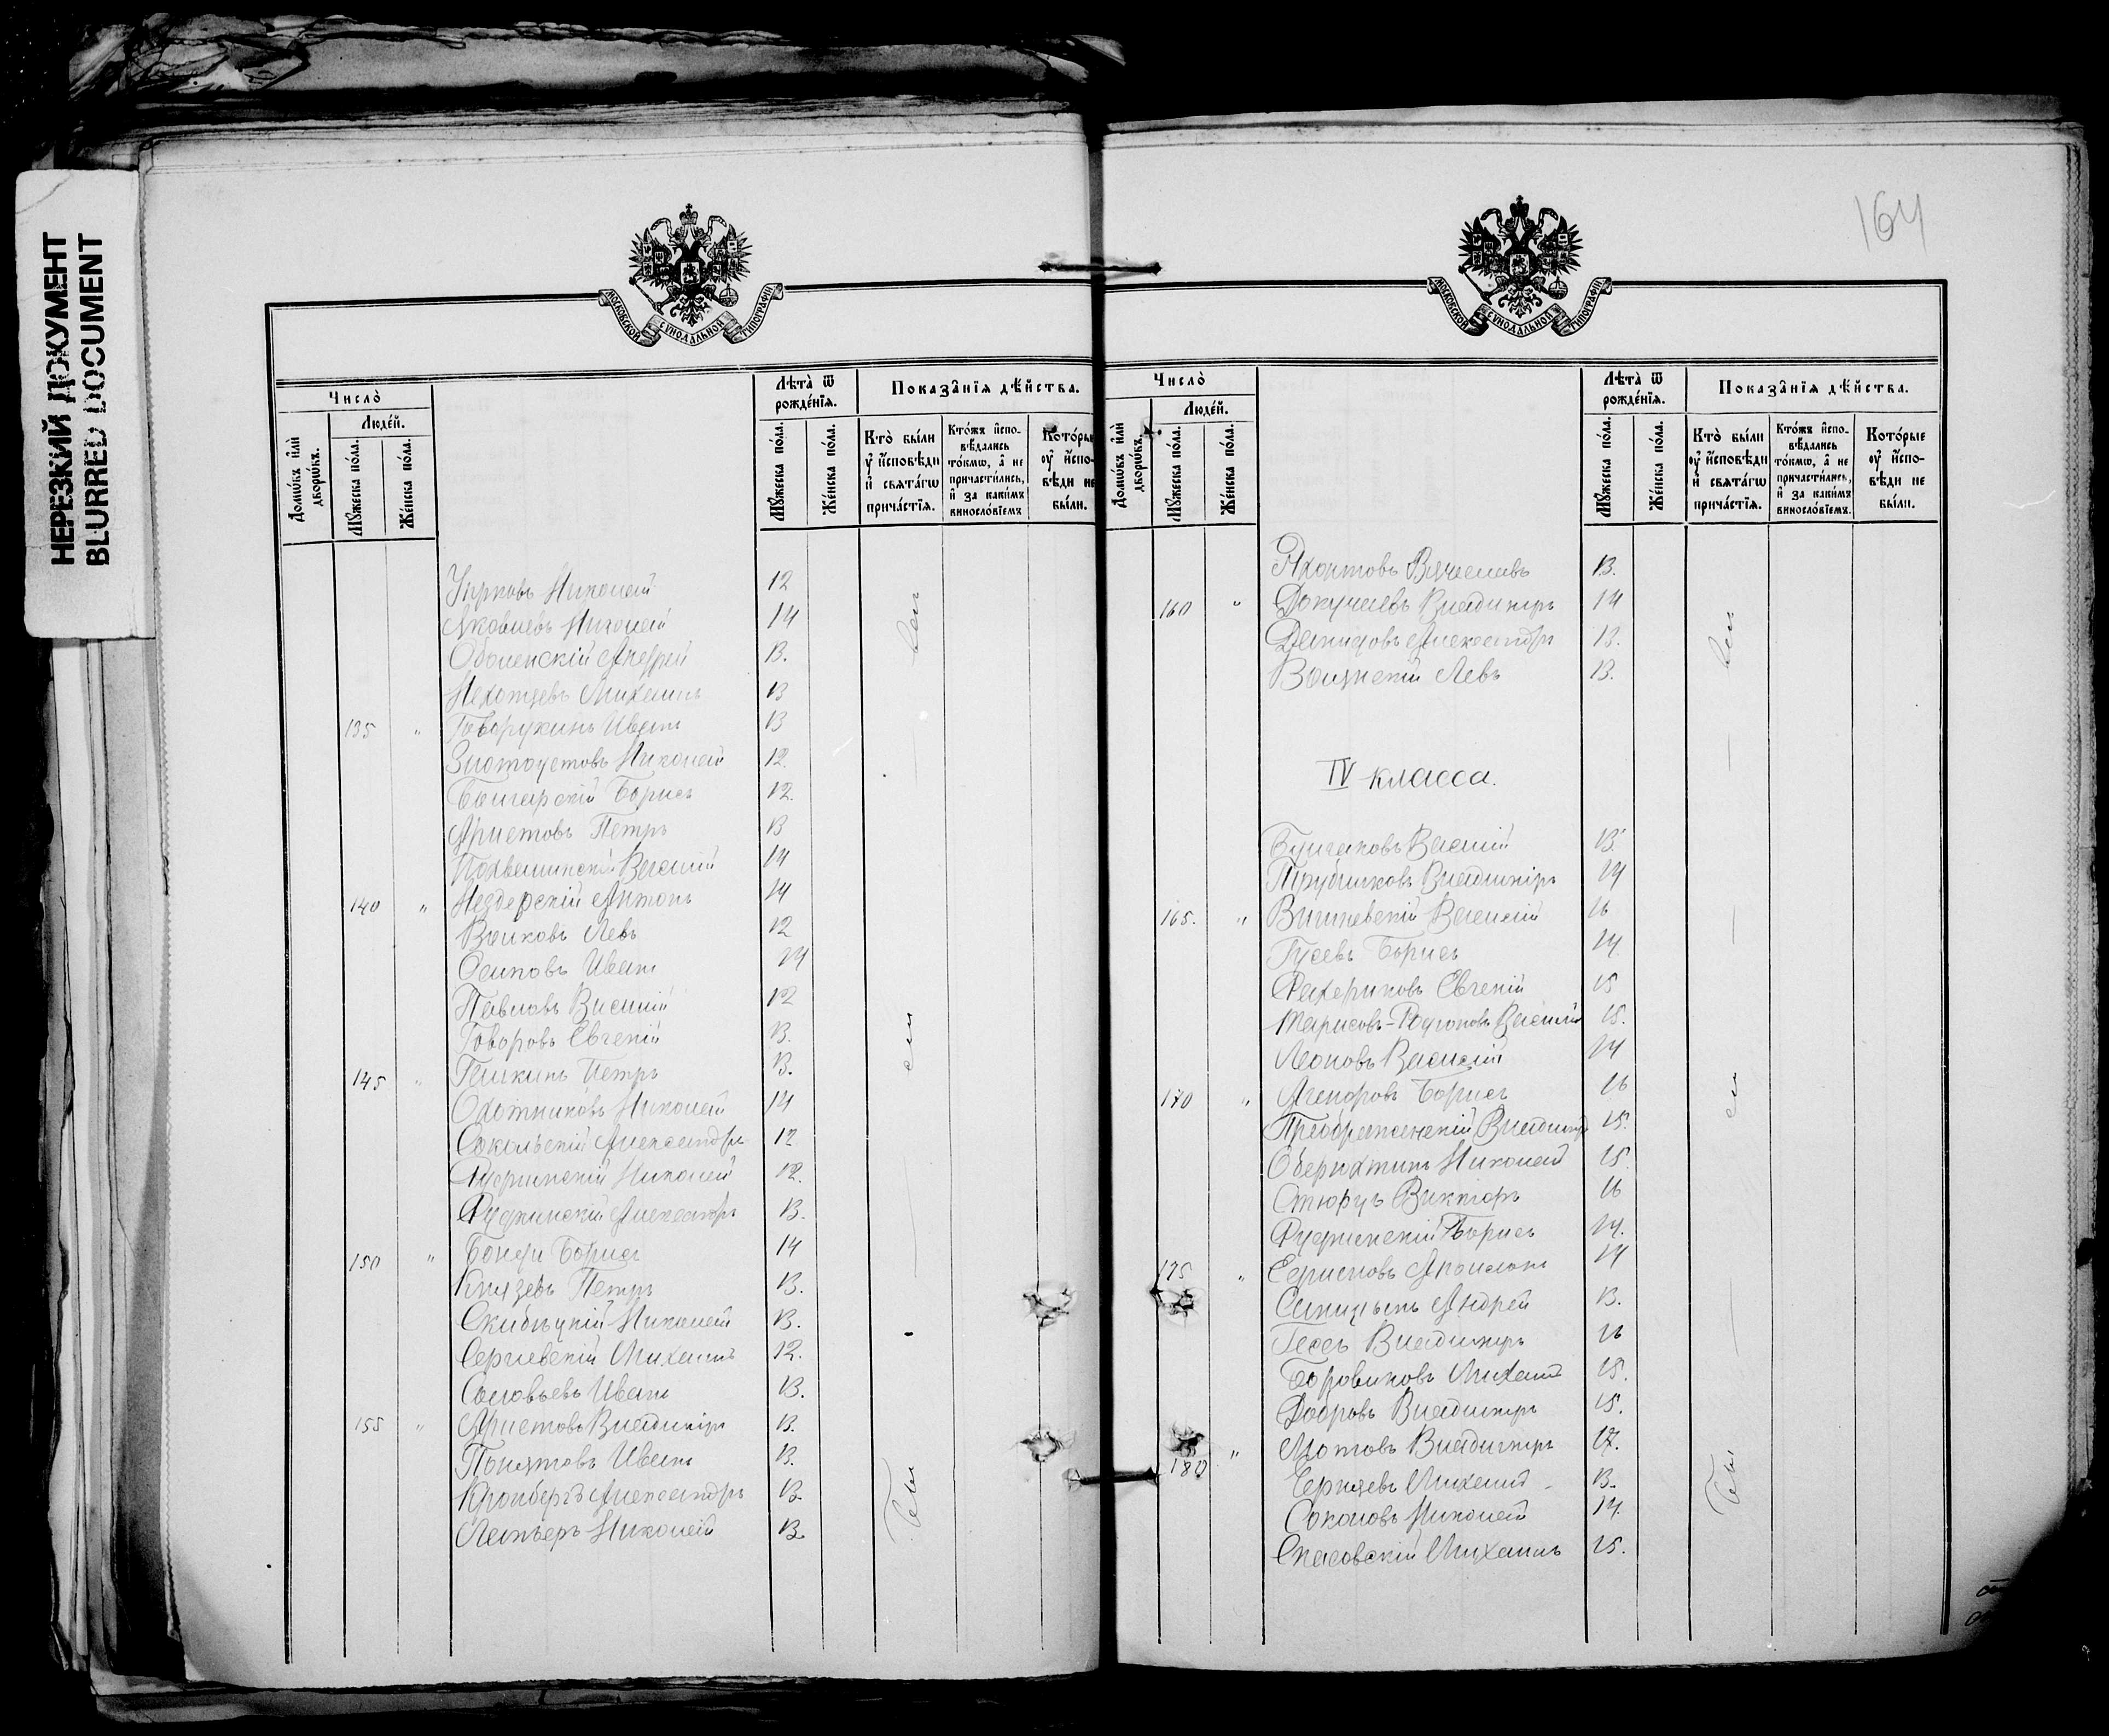 НЕРЕЗКИЙ ДОКУМЕНТ
BLURRED DOCUMENT
МОСКОВСКОЙ СУНОДАЛЬНОЙ ТИПОГРАФІИ
Число̀
Люде́й.
Домѡ́въ и҆лѝ дворѡ́въ.
Мꙋ́жеска по́ла.
Же́нска по́ла.
Лѣта̀ ѿ рожде́нїѧ.
Мꙋ́жеска по́ла.
Же́нска по́ла.
Показа̑нїѧ дѣ́йства.
Кто̀ бы́ли ᲂу҆ и҆сповѣ́ди и҆ свѧта́гѡ прича́стїѧ.
Кто́жъ и҆сповѣ́дались то́кмѡ, а҆ не причасти́лись, и҆ за каки́мъ винослѡ́вїемъ
Кото́рые ᲂу҆ и҆сповѣ́ди не бы́ли.
Николай 12
Яковлевъ Николай 14
Оболенскій Андрей 13.
Михаилъ 13
135 " Говорухинъ Иванъ 13
Златоустовъ Николай 12.
Болгарскій Борисъ 12.
Аристовъ Петръ 13
Похвалинскій Василій 14
140 " Нездерскій Антонъ 14
Волковъ Левъ 12
Осиповъ Иванъ 14
Павловъ Василій 12
Говоровъ Евгеній 13.
145 " Галкинъ Петръ 13.
Охотниковъ Николай 14
Сокольскій Александръ 12
Рудинскій Николай 12.
Руднинскій Александръ 13.
150 " Борисъ 14
Князевъ Петръ 13.
Скибицкій Николай 13.
Сергіевскій Михаилъ 12.
Соловьевъ Иванъ 13.
155 " Аристовъ Владиміръ 13.
Понятовъ Иванъ 13.
Кронбергъ Александръ 13.
Николай 13.
164
МОСКОВСКОЙ СУНОДАЛЬНОЙ ТИПОГРАФІИ
Число̀
Люде́й.
Домѡ́въ и҆лѝ дворѡ́въ.
Мꙋ́жеска по́ла.
Же́нска по́ла.
Лѣта̀ ѿ рожде́нїѧ.
Мꙋ́жеска по́ла.
Же́нска по́ла.
Показа̑нїѧ дѣ́йства.
Кто̀ бы́ли ᲂу҆ и҆сповѣ́ди и҆ свѧта́гѡ прича́стїѧ.
Кто́жъ и҆сповѣ́дались то́кмѡ, а҆ не причасти́лись, и҆ за каки́мъ винослѡ́вїемъ.
Кото́рые ᲂу҆ и҆сповѣ́ди не бы́ли.
Яхонтовъ Вячеславъ 13.
160 " Докучаевъ Владиміръ 14
Демидовъ Александръ 13.
Левъ 13.
IV класса.
Булгаковъ Василій 13.
Трубниковъ Владиміръ 14
165. " Вишневскій Василій 16
Гусевъ Борисъ 14.
Евгеній 15
Василій 15.
Леоновъ Василій 14
170 " Агеноровъ Борисъ 16
Преображенскій Владиміръ 15.
Оберюхтинъ Николай 15.
Викторъ 16
Рудинскій Борисъ 14.
175 " 14
Синицынъ Андрей 13.
Гессъ Владиміръ 16
Боровиковъ Михаилъ 15.
Добровъ Владиміръ 15.
180 " Мотовъ Владиміръ 17.
Михаилъ 13.
Соколовъ Николай 14.
Спасовскій Михаилъ 15.